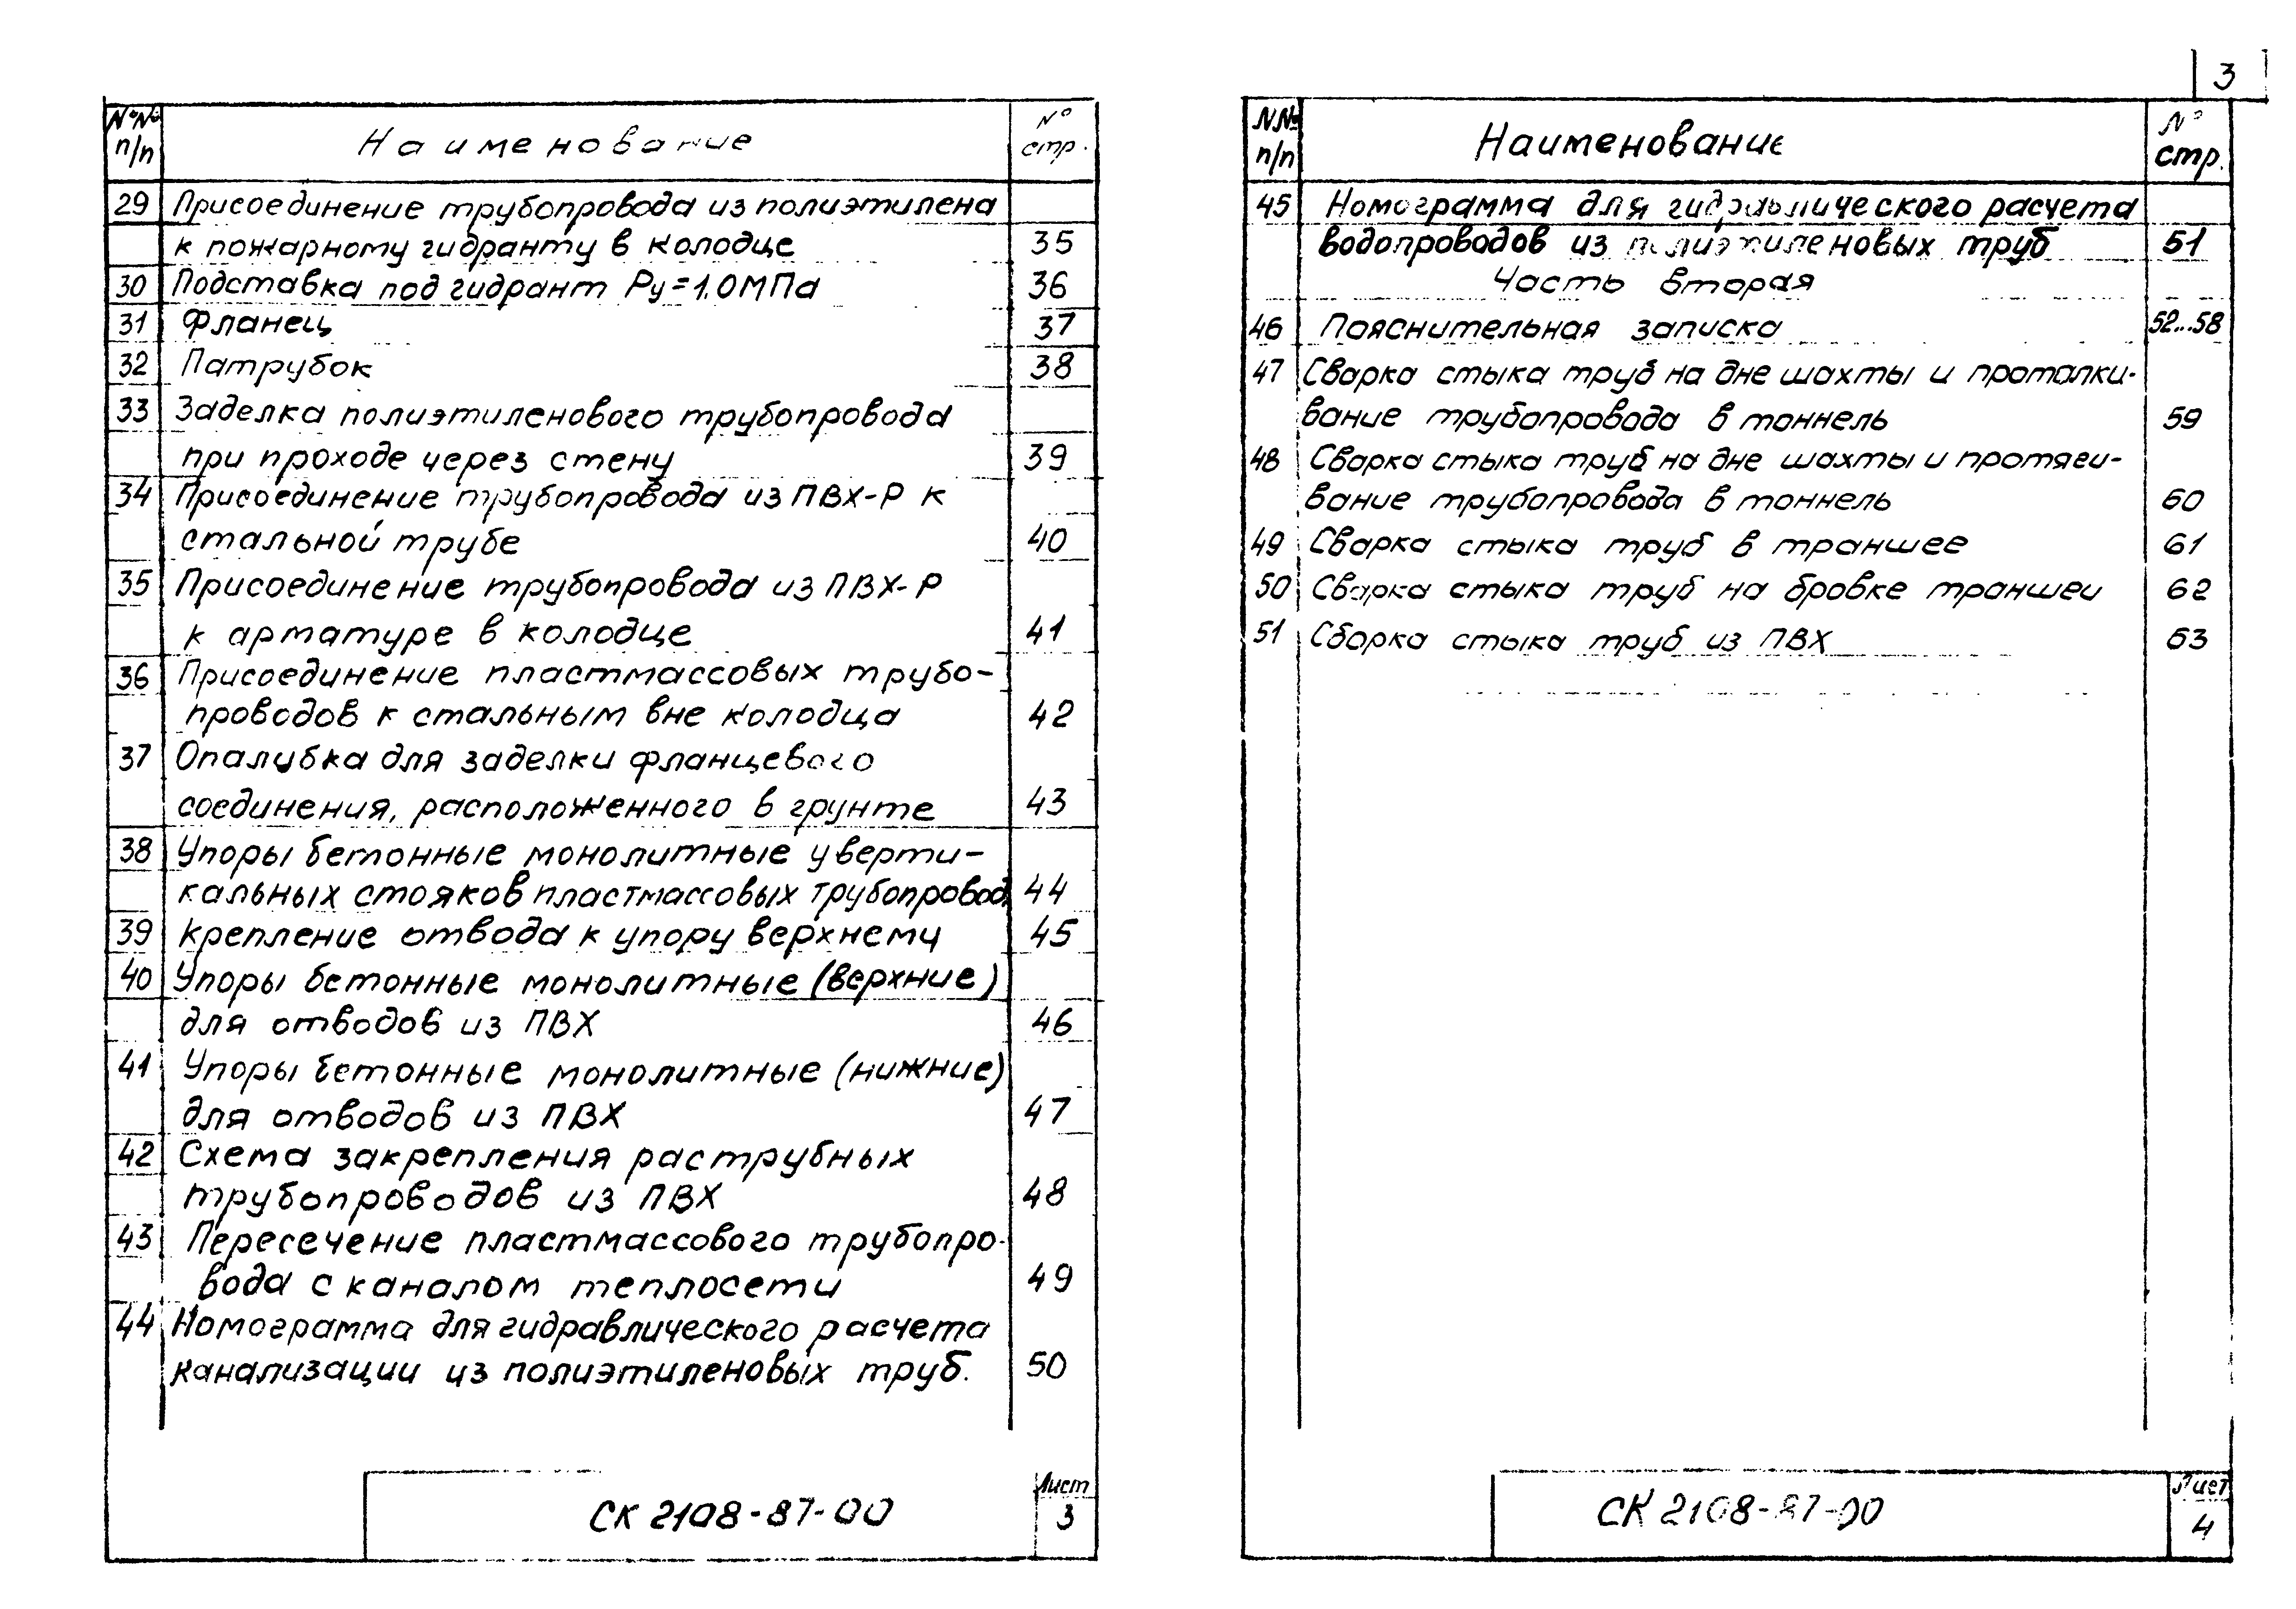 3
№№ Наименование №
п/п стр.
29 Присоединение трубопровода из полиэтилена
к пожарному гидранту в колодце 35
30 Подставка под гидрант Ру=1.0МПа 36
31 Фланец 37
32 Патрубок 38
33 Заделка полиэтиленового трубопровода
при проходе через стену 39
34 Присоединение трубопровода из ПВХ-Р к
стальной трубе 40
35 Присоединение трубопровода из ПВХ-Р
к арматуре в колодце 41
36 Присоединение пластмассовых трубо-
проводов к стальным вне колодца 42
37 Опалубка для заделки фланцевого
соединения, расположенного в грунте 43
38 Упоры бетонные монолитные у верти-
кальных стояков пластмассовых трубопровод. 44
39 крепление отвода к упору верхнему 45
40 Упоры бетонные монолитные (верхние)
для отводов из ПВХ 46
41 Упоры бетонные монолитные (нижние)
для отводов из ПВХ 47
42 Схема закрепления раструбных
трубопроводов из ПВХ 48
43 Пересечение пластмассового трубопро-
вода с каналом теплосети 49
44 Номограмма для гидравлического расчета
канализации из полиэтиленовых труб. 50
СК 2108-87-00
Лист
3
NN№ Наименование №
п/п стр.
45 Номограмма для гидравлического расчета
водопроводов из полиэтиленовых труб 51
Часть вторая
46 Пояснительная записка 52...58
47 Сварка стыка труб на дне шахты и проталки-
вание трубопровода в тоннель 59
48 Сварка стыка труб на дне шахты и протяги-
вание трубопровода в тоннель 60
49 Сварка стыка труб в траншее 61
50 Сварка стыка труб на бровке траншеи 62
51 Сборка стыка труб из ПВХ 63
СК 2108-87-00
Лист
4